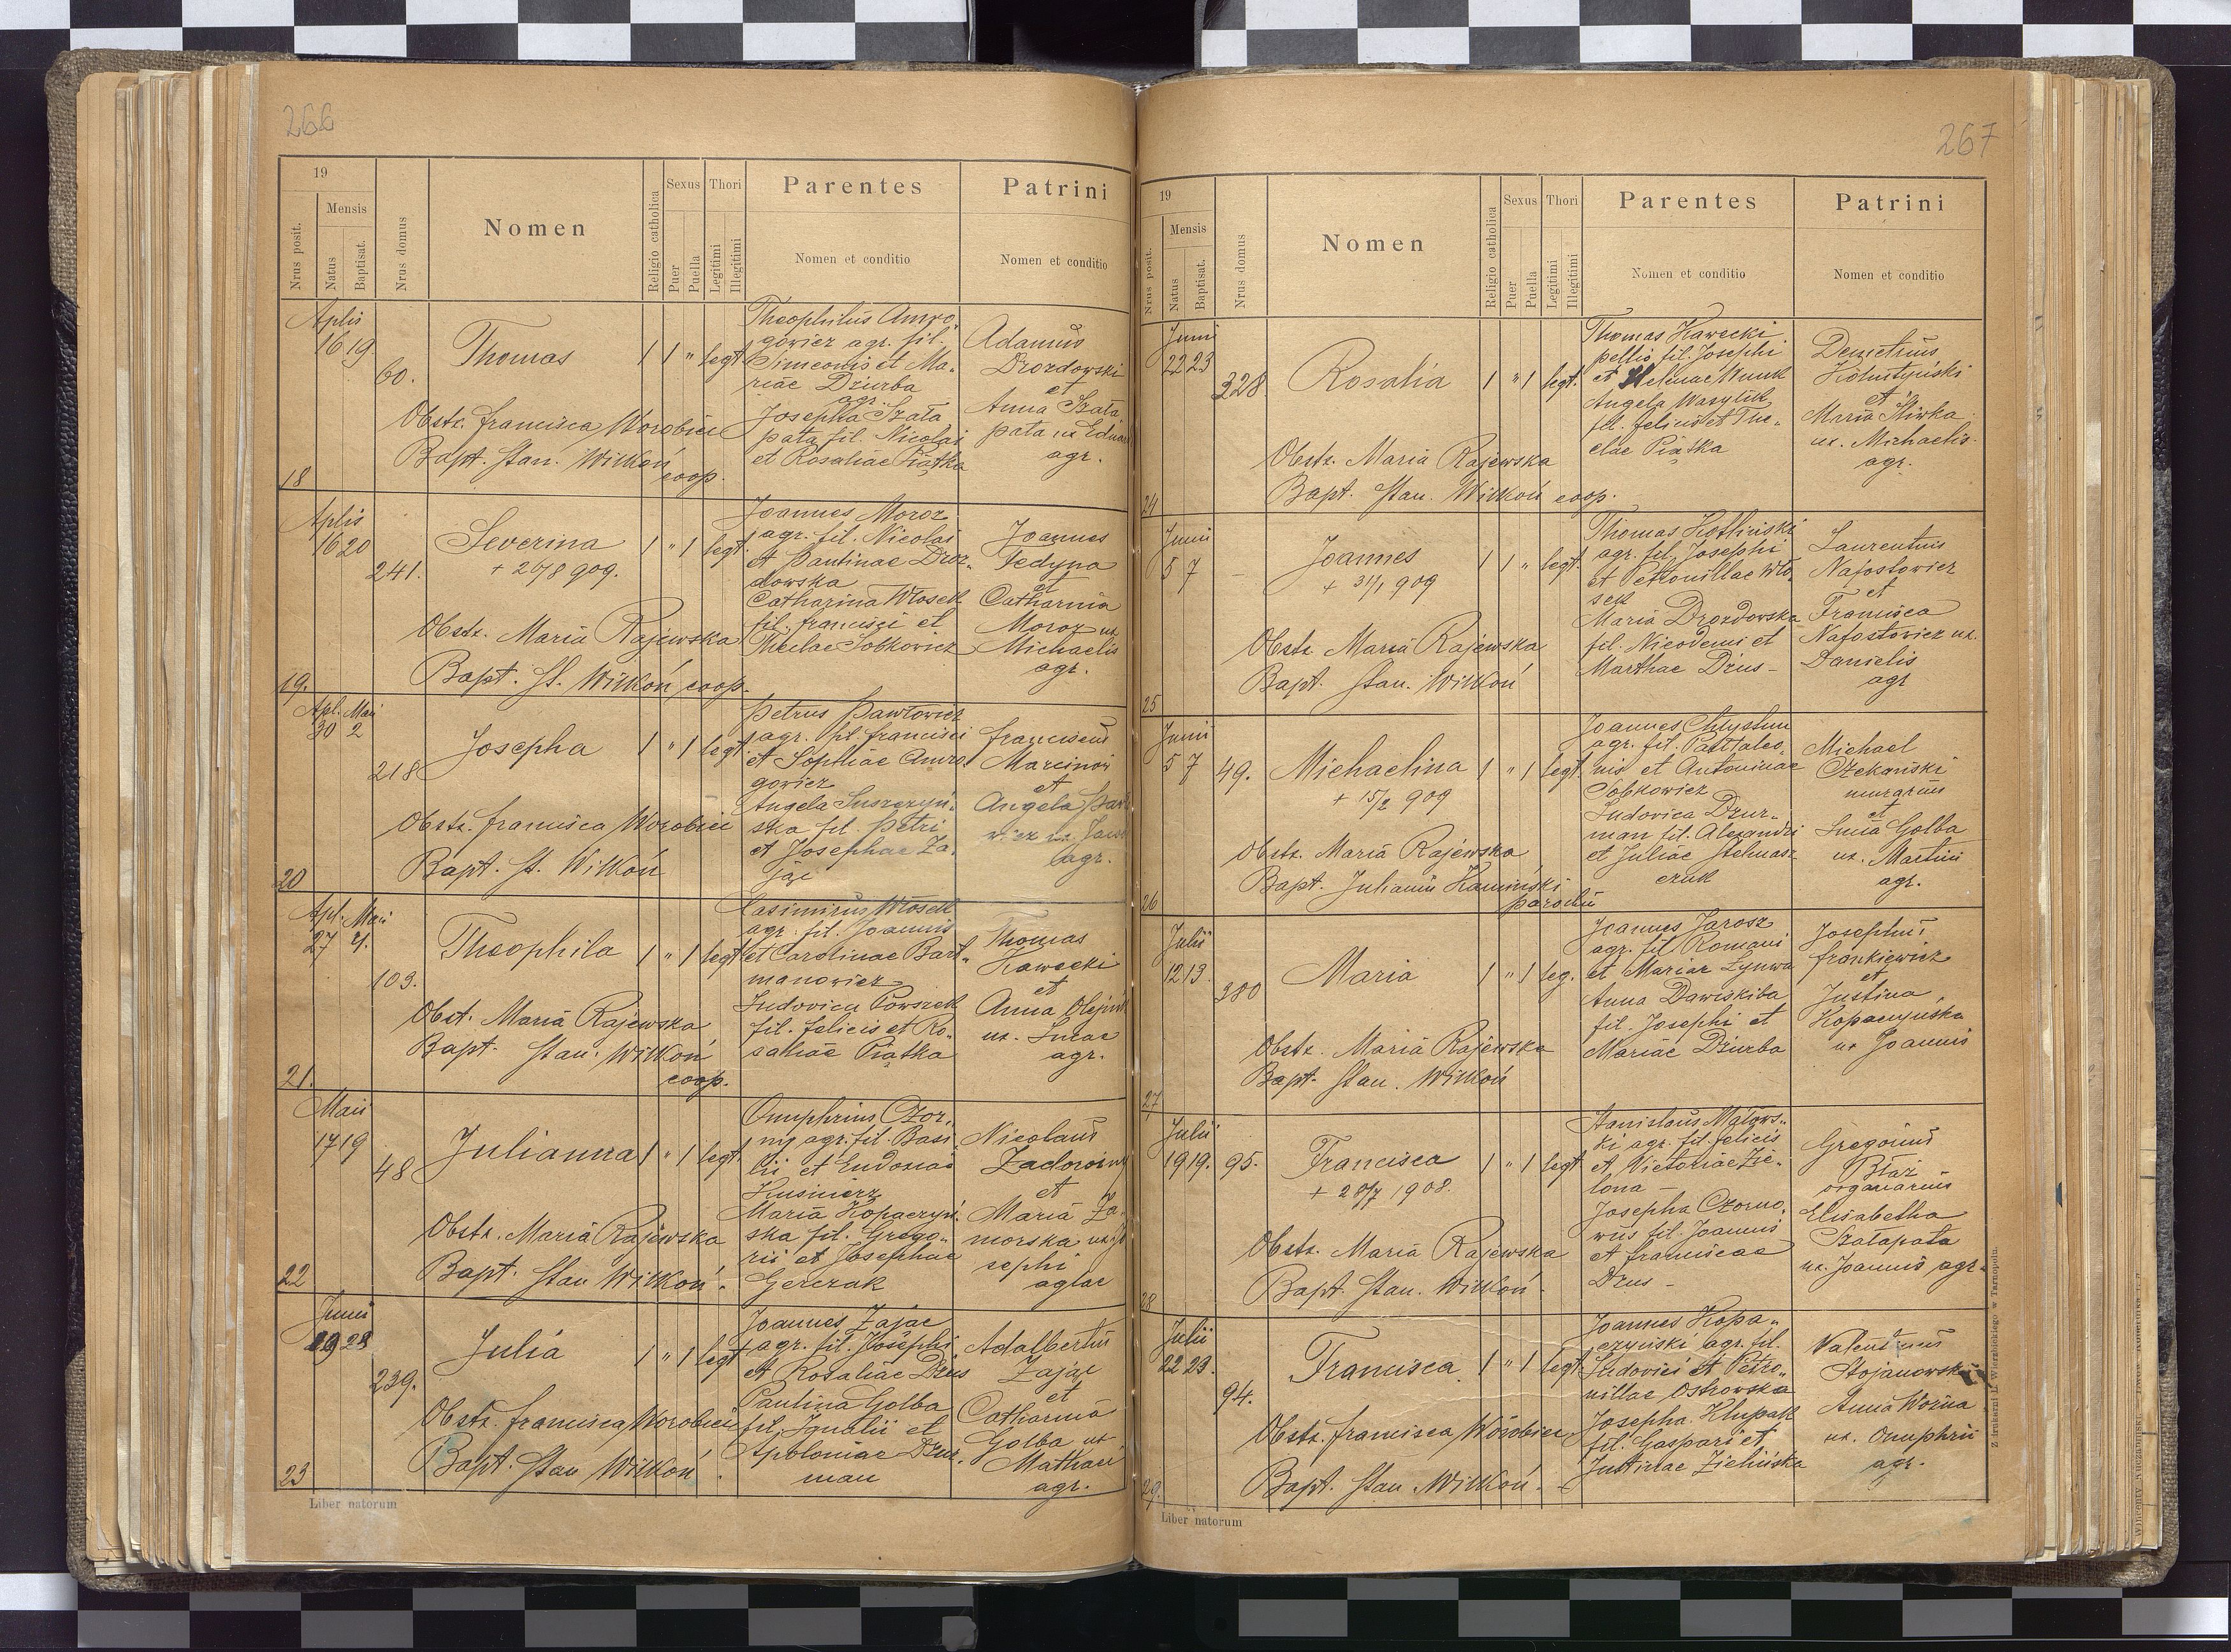 266
19
Mensis
Nrus posit.
Natus
Baptisat.
Nrus domus
Nomen
Religio catholica
Sexus
Puer
Puella
Thori
Legitimi
Illegitimi
Parentes
Nomen et conditio
Patrini
Nomen et conditio
Aplis
16 19
60.
Thomas
1 1 " legt.
Theophilus Amro-
gowicz agr. fil.
Simeonis et Ma-
riae Dziurba
agr.
Josepha Szała
pata fil. Nicolai
et Rosaliae Piątka
Adamus
Drozdowski
et
Anna Szała
pata ux Eduar
agr.
Obstz. Francisca Worobiec
Bapt. Stan. Wilkoń
coop.
18
Aplis
16 20
241.
Severina
+ 26/8 909.
1 " 1 legt.
Joannes Moroz
agr. fil. Nicolai
et Paulinae Droz-
dowska
Catharina Włosek
fil. Francisci et
Theclae Sobkowicz
Joannes
Fedyna
et
Catharina
Moroz ux
Michaelis
agr.
Obstz. Maria Rajewska
Bapt. St. Wilkoń, coop.
19.
Apl. Mai
30 2
218
Josepha
1 " 1 legt.
Petrus Pawłowicz
agr. fil. Francisci
et Sophiae Amro-
gowicz
Angela Suszczyń-
ska fil. Petri
et Josephae Za-
jąc
Franciscus
Marcinow
et
Angela
agr.
Obstz. Francisca Worobiec
Bapt. St. Wilkoń
20
Apl. Mai
27 4.
103.
Theophila
1 " 1 legt
Casimirus Włosek
agr. fil. Joannis
et Carolinae Bart-
manowicz
Ludovica Powszek
fil. Felicis et Ro-
saliae Piątka
Thomas
Kawecki
et
Anna Olejnik
ux. Lucae
agr.
Obst. Maria Rajewska
Bapt. Stan. Wilkoń
coop.
21.
Maii
17 19
48
Julianna
1 " 1 legt.
Onuphrius Czor-
nij agr. fil. Basi
lii et Eudosiae
Kusnierz
Maria Kopaczyń-
ska fil. Grego-
rii et Josephae
Gerczak
Nicolaus
Zadorożny
et
Maria Za-
morska ux. Jo
sephi
aglae
Obstz. Maria Rajewska
Bapt. Stan Wilkoń.
22
Junii
19 28
239.
Julia
1 " 1 legt
Joannes Zając
agr. fil. Josephi
et Rosaliae Dzius
Paulina Golba
fil. Ignatii et
Apoloniae Dzur-
man
Adalbertus
Zając
et
Catharina
Golba ux
Mathaei
agr.
Obstz. Francisca Worobiec
Bapt. Stan Wilkoń.
23
Liber natorum
267
19
Mensis
Nrus posit.
Natus
Baptisat.
Nrus domus
Nomen
Religio catholica
Sexus
Puer
Puella
Thori
Legitimi
Illegitimi
Parentes
Nomen et conditio
Patrini
Nomen et conditio
Junii
22 23
328
Rosalia
1 " 1 legt.
Thomas Kawecki
pellio fil. Josephi
et Helenae Wnuk
Angela Wasylik
fil. Felicis et The-
clae Piątka
Demetrius
et
Maria Śliwka
ux. Michaelis
agr.
Obstz. Maria Rajewska
Bapt. Stan. Wilkoń coop.
24
Junii
5 7
Joannes
+ 31/1 909
1 1 " legt.
Thomas Kotliński
agr. fil. Josephi
et Petronillae Wło-
sek
Maria Drozdowska
fil. Nicodemi et
Marthae Dzus -
Laurentius
Nafostowicz
et
Francisca
Nafostowicz ux.
Danielis
agr
Obstz Maria Rajewska
Bapt. Stan. Wilkoń
25
Junii
5 7
49.
Michaelina
+ 15/2 909
1 " 1 legt.
Joannes Chłystun
agr. fil. Pantaleo-
nis et Antoninae
Sobkowicz
Ludovica Dzur-
man fil. Alexandri
et Juliae Stelmasz
czuk
Michael
Czekański
murarius
et
Lucia Golba
ux. Martini
agr.
Obstz. Maria Rajewska
Bapt. Julianus Kamiński
parochus
26
Julii
12 13
380
Maria
1 " 1 leg.
Joannes Jarosz
agr. fil Romani
et Mariae Zynwa
Anna Dawiskiba
fil. Josephi et
Mariae Dziurba
Josephus
Frankiewicz
et
Justina
Kopaczyńska
ux Joannis
Obstz. Maria Rajewska
Bapt. Stan. Wilkoń
27
Julii
19 19.
95.
Francisca
+ 20/7 1908.
1 " 1 legt
Stanislaus Małows-
ki agr. fil. Felicis
et Victoriae Zie-
lona -
Josepha Czorno-
wus fil. Joannis
et Franciscae
Dzus -
Gregorius
Błaż
organarius
Elisabetha
Szałapata
ux. Joannis agr.
Obstz. Maria Rajewska
Bapt. Stan. Wilkoń.
28
Julii
22 23.
94.
Francisca
1 " 1 legt.
Joannes Kopa-
czyński agr. fil.
Ludovici et Petro-
nillae Ostrowska
Josepha Klupak
fil. Gaspari et
Justinae Zielińska
Valentinus
Stojanowski
Anna Woźna
ux. Onuphrii
agr.
Obstz. Francisca Worobiec
Bapt. Stan. Wilkoń.
29.
Liber natorum
Z drukarni L. Wierzbickiego w Tarnopolu.